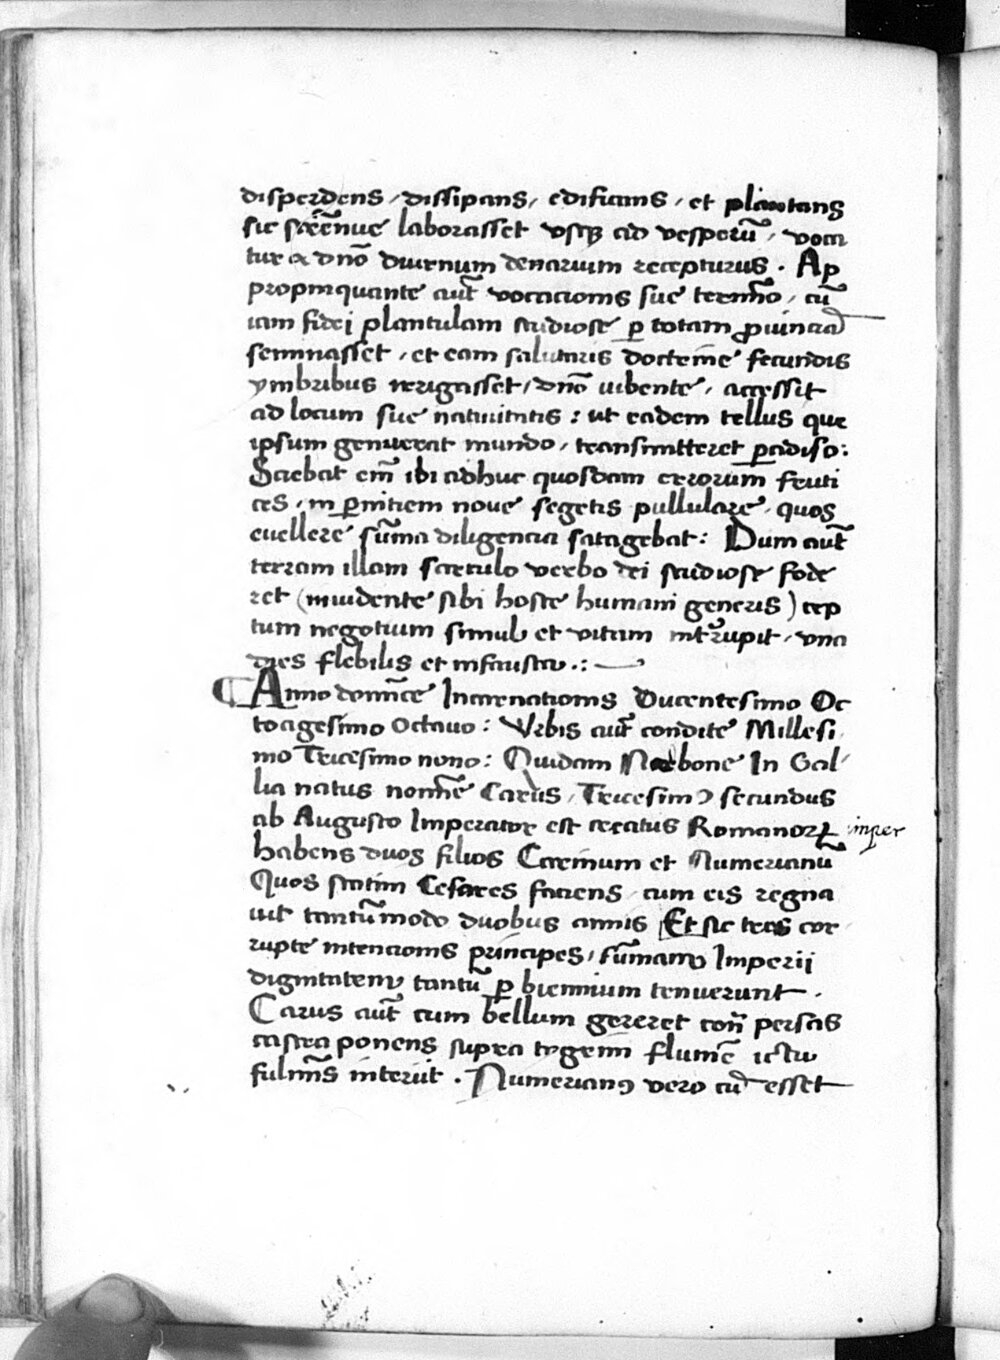 disperdens, dissipans, edificans, et plantans
sic strēnue laborasset vsqꝫ ad vesperū, voca
tur a dn̄o diurnum denarium recepturus. Ap
propinquante aut̄ vocacionis sue termīo, cū
iam fidei plantulam studiose ꝑ totam ꝓuinciā
seminasset, et eam salutaris doctrine fecundis
ymbribus irrigasset, dn̄o iubente, accessit
ad locum sue natiuitatis: ut eadem tellus que
ipsum genuerat mundo, transmitteret ꝑadiso:
Sciebat em̄ ibi adhuc quosdam errorum fruti
ces, in ꝑniciem noue segetis pullulare, quos
euellere sūma diligencia satagebat: Dum aut̄
terram illam sarculo verbo dei studiose fode
ret (inuidente sibi hoste humani generis) cep
tum negotium simul et vitam intˀrupit, vna
dies flebilis et infausta.:
¶ Anno domīce Incarnationis Ducentesimo Oc
toagesimo Octauo: Vrbis aut̄ condite Millesi
mo Tricesimo nono: Quidam Narbone In Gal
lia natus nomīe Carus, Tricesimꝰ secundus
ab Augusto Imperator est creatus Romanorꝝ imper
habens duos filios Carinum et Numerianū
Quos statim Cesares faciens, cum eis regna
uit tantūmodo duobus annis Et sic tres cor
rupte intencionis principes, sūmam Imperii
dignitatem tantū ꝑ biennium tenuerunt.
Carus aut̄ cum bellum gereret con̄ persas
castra ponens supra tygrim flumē ictu
fulmīs interiit. Numerianꝰ vero cū esset